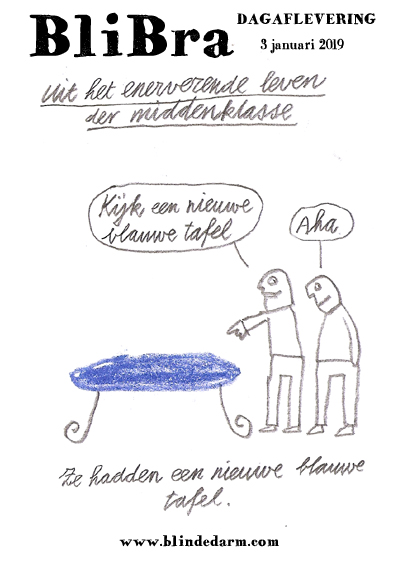 BliBra
DAGAFLEVERING
3 januari 2019
uit het enerverende leven
der middenklasse
Kijk, een nieuwe
blauwe tafel
Aha
Ze hadden een nieuwe blauwe
tafel.
www.blindedarm.com